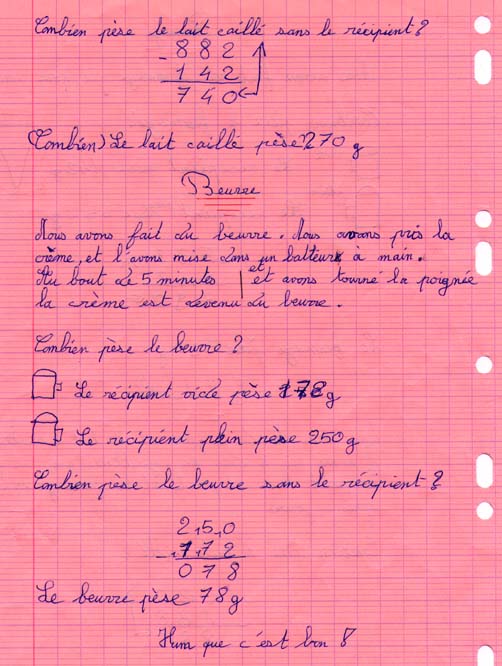 Combien pèse le lait caillé sans le récipient ?
- 882
142
740
(Combien) Le lait caillé pèse 270 g
Beurre
Nous avons fait du beurre. Nous avons pris la
crème, et l'avons mise dans un batteur à main.
Au bout de 5 minutes et et avons tourné la poignée
la crème est devenu du beurre.
Combien pèse le beurre ?
Le récipient vide pèse 178 g
Le récipient plein pèse 250 g
Combien pèse le beurre sans le récipient ?
250
- 172
078
Le beurre pèse 78 g
Hum que c'est bon